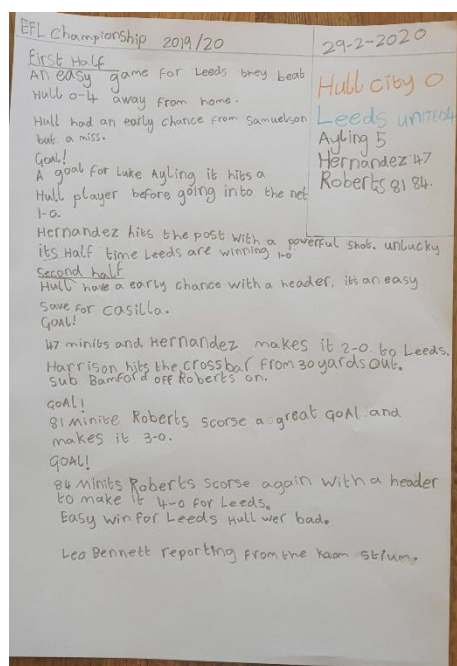 EFL Championship 2019/20
29-2-2020
Hull City 0
Leeds UNITED4
Ayling 5
Hernandez 47
Roberts 81 84.
First Half
An easy game for Leeds they beat
Hull 0-4 away from home.
Hull had an early chance from Samuelson
but a miss.
GOAL!
A goal for Luke Ayling it hits a
Hull player before going into the net
1-0.
Hernandez hits the post with a powerful shot. unlucky
its Half time Leeds are winning 1-0
Second half
Hull have a early chance with a header, its an easy
Save for Casilla.
GOAL!
47 minits and Hernandez makes it 2-0 to Leeds.
Harrison hits the crossbar from 30 yards out.
Sub Bamford off Roberts on.
GOAL!
81 Minite Roberts scorse a great GOAL and
makes it 3-0.
GOAL!
84 Minits Roberts scorse again with a header
to make it 4-0 for Leeds.
Easy win for Leeds Hull wer bad.
Leo Bennett reporting from the kaom stium.